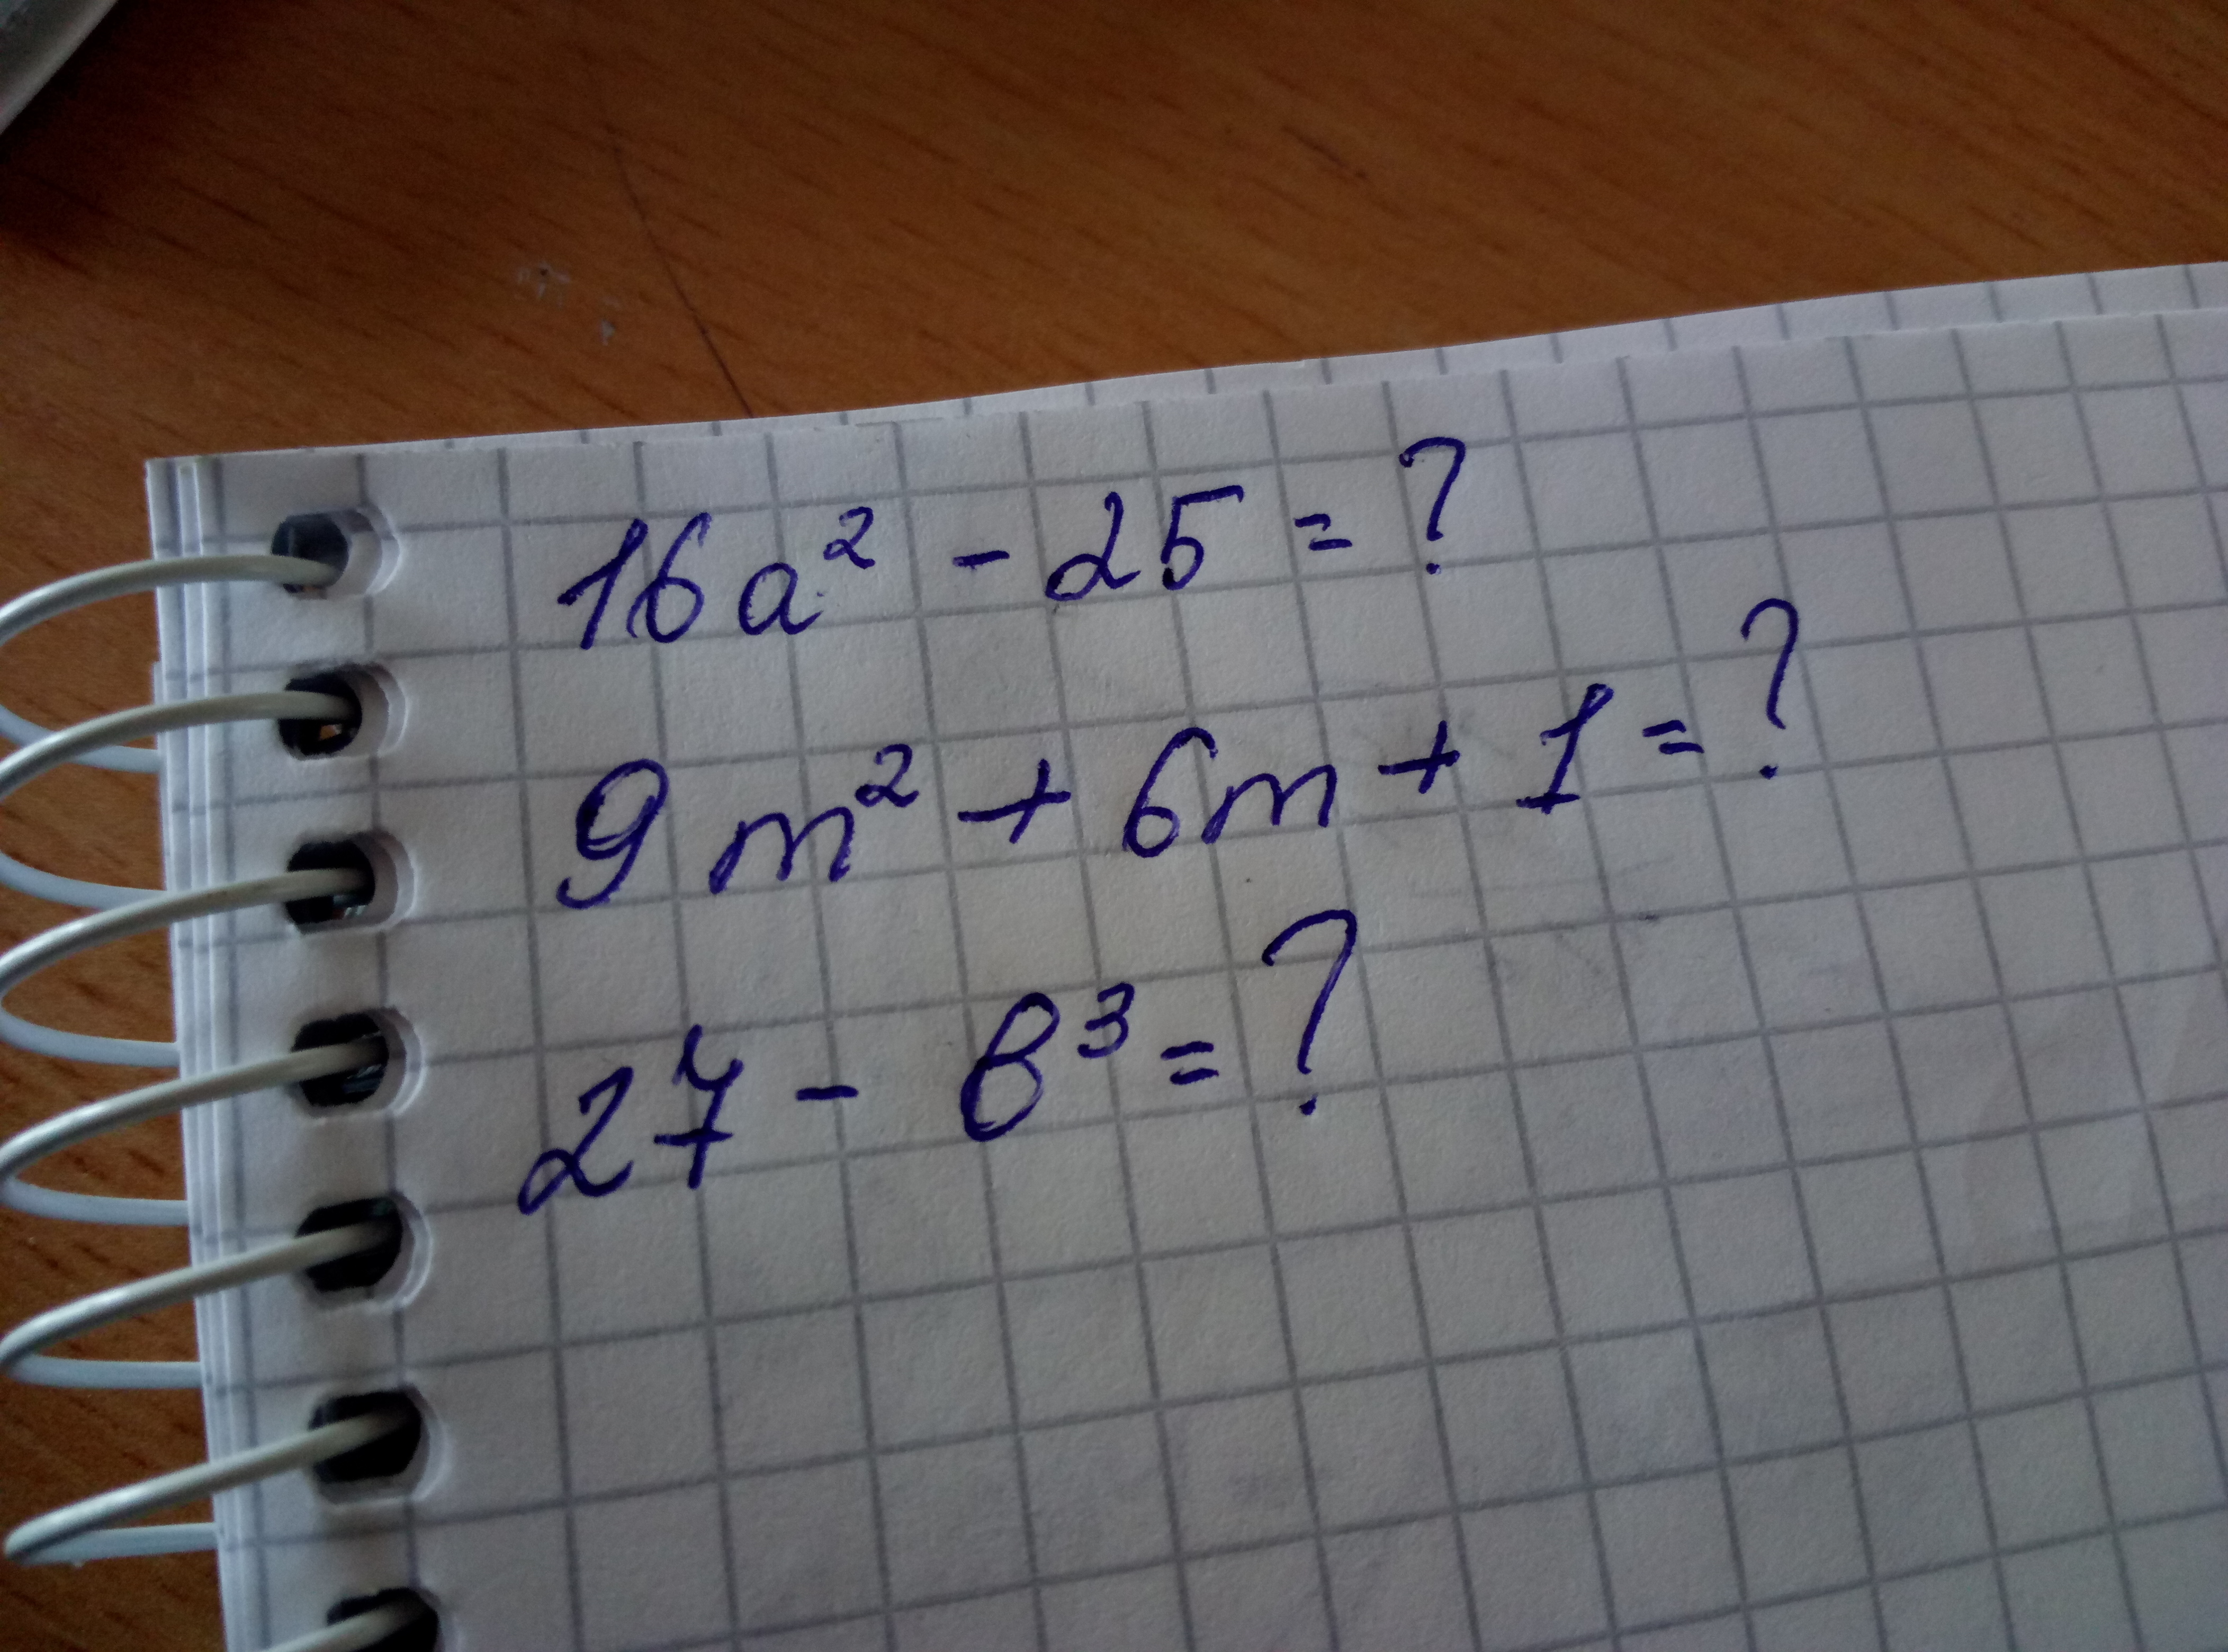 16a² - 25 = ?
9m² + 6m + 1 = ?
27 - в³ = ?